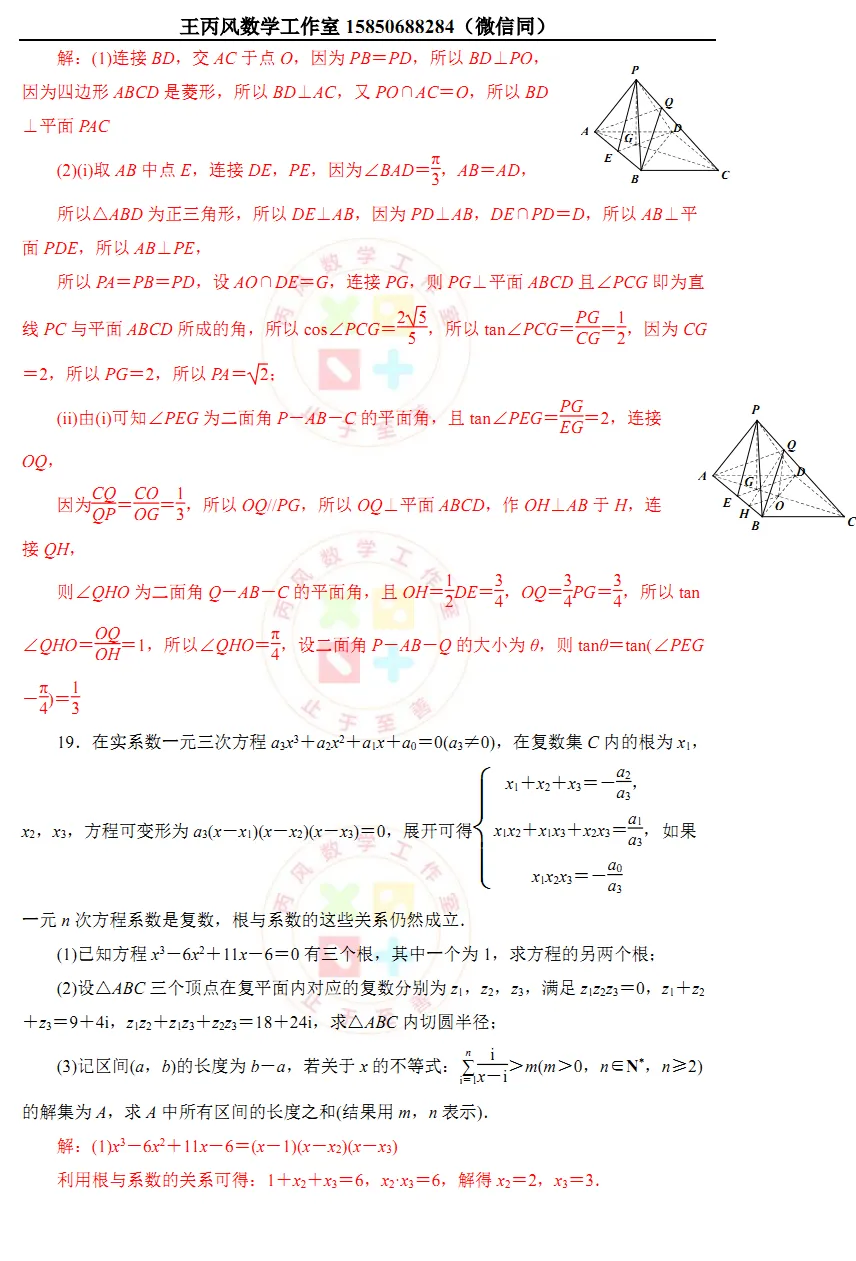 王丙风数学工作室 15850688284（微信同）
解：(1)连接 BD，交 AC 于点 O，因为 PB＝PD，所以 BD⊥PO，
因为四边形 ABCD 是菱形，所以 BD⊥AC，又 PO∩AC＝O，所以 BD
⊥平面 PAC
P
Q
A
D
G
E
B
C
(2)(i)取 AB 中点 E，连接 DE，PE，因为∠BAD＝π/3，AB＝AD，
所以△ABD 为正三角形，所以 DE⊥AB，因为 PD⊥AB，DE∩PD＝D，所以 AB⊥平
面 PDE，所以 AB⊥PE，
所以 PA＝PB＝PD，设 AO∩DE＝G，连接 PG，则 PG⊥平面 ABCD 且∠PCG 即为直
线 PC 与平面 ABCD 所成的角，所以 cos∠PCG＝2√5/5，所以 tan∠PCG＝PG/CG＝1/2，因为 CG
＝2，所以 PG＝2，所以 PA＝√2；
(ii)由(i)可知∠PEG 为二面角 P－AB－C 的平面角，且 tan∠PEG＝PG/EG＝2，连接
OQ，
因为CQ/QP＝CO/OG＝1/3，所以 OQ//PG，所以 OQ⊥平面 ABCD，作 OH⊥AB 于 H，连
接 QH，
P
Q
A
G
D
E
H
B
O
C
则∠QHO 为二面角 Q－AB－C 的平面角，且 OH＝1/2DE＝3/4，OQ＝3/4PG＝3/4，所以 tan
∠QHO＝OQ/OH＝1，所以∠QHO＝π/4，设二面角 P－AB－Q 的大小为 θ，则 tanθ＝tan(∠PEG
－π/4)＝1/3
19．在实系数一元三次方程 a₃x³＋a₂x²＋a₁x＋a₀＝0(a₃≠0)，在复数集 C 内的根为 x₁，
x₂，x₃，方程可变形为 a₃(x－x₁)(x－x₂)(x－x₃)＝0，展开可得{x₁＋x₂＋x₃＝－a₂/a₃，
x₁x₂＋x₁x₃＋x₂x₃＝a₁/a₃，如果
x₁x₂x₃＝－a₀/a₃
一元 n 次方程系数是复数，根与系数的这些关系仍然成立．
(1)已知方程 x³－6x²＋11x－6＝0 有三个根，其中一个为 1，求方程的另两个根；
(2)设△ABC 三个顶点在复平面内对应的复数分别为 z₁，z₂，z₃，满足 z₁z₂z₃＝0，z₁＋z₂
＋z₃＝9＋4i，z₁z₂＋z₁z₃＋z₂z₃＝18＋24i，求△ABC 内切圆半径；
(3)记区间(a，b)的长度为 b－a，若关于 x 的不等式：∑(i＝1 到 n) i/(x－i)＞m(m＞0，n∈N*，n≥2)
的解集为 A，求 A 中所有区间的长度之和(结果用 m，n 表示)．
解：(1)x³－6x²＋11x－6＝(x－1)(x－x₂)(x－x₃)
利用根与系数的关系可得：1＋x₂＋x₃＝6，x₂·x₃＝6，解得 x₂＝2，x₃＝3．
丙风数学工作室
止于至善
丙风数学工作室
止于至善
丙风数学工作室
止于至善